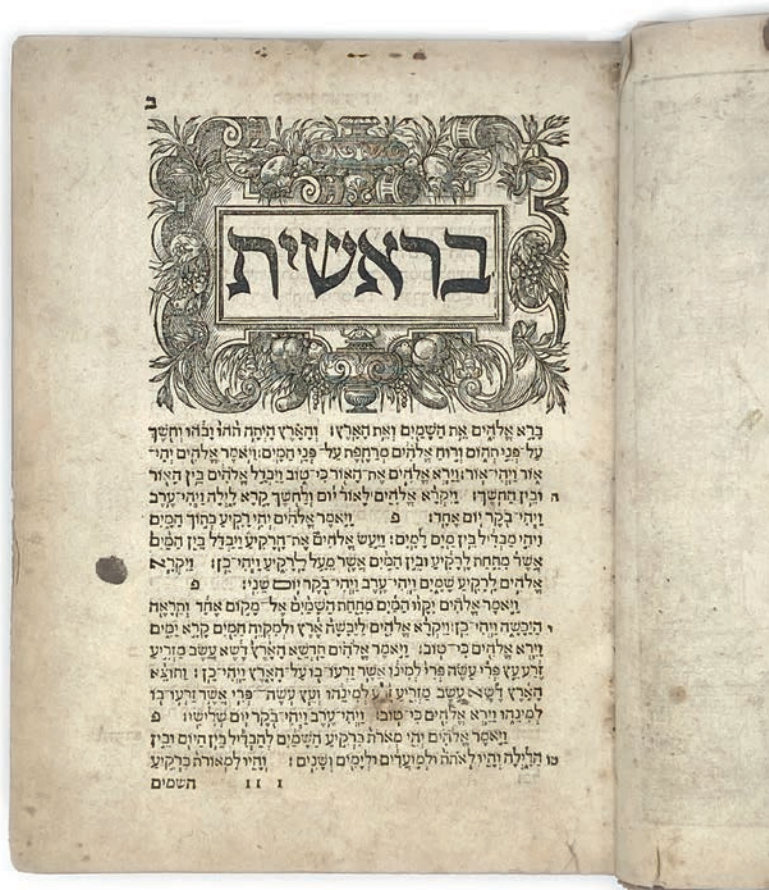 ב
בראשית
בָּרָא אֱלֹהִים אֵת הַשָּׁמַיִם וְאֵת הָאָרֶץ׃ וְהָאָרֶץ הָיְתָה תֹהוּ וָבֹהוּ וְחֹשֶׁךְ
עַל־פְּנֵי תְהוֹם וְרוּחַ אֱלֹהִים מְרַחֶפֶת עַל־פְּנֵי הַמָּיִם׃ וַיֹּאמֶר אֱלֹהִים יְהִי־
אוֹר וַיְהִי־אוֹר׃ וַיַּרְא אֱלֹהִים אֶת־הָאוֹר כִּי־טוֹב וַיַּבְדֵּל אֱלֹהִים בֵּין הָאוֹר
ה וּבֵין הַחֹשֶׁךְ׃ וַיִּקְרָא אֱלֹהִים לָאוֹר יוֹם וְלַחֹשֶׁךְ קָרָא לָיְלָה וַיְהִי־עֶרֶב
וַיְהִי־בֹקֶר יוֹם אֶחָד׃ פ וַיֹּאמֶר אֱלֹהִים יְהִי רָקִיעַ בְּתוֹךְ הַמָּיִם
וִיהִי מַבְדִּיל בֵּין מַיִם לָמָיִם׃ וַיַּעַשׂ אֱלֹהִים אֶת־הָרָקִיעַ וַיַּבְדֵּל בֵּין הַמַּיִם
אֲשֶׁר מִתַּחַת לָרָקִיעַ וּבֵין הַמַּיִם אֲשֶׁר מֵעַל לָרָקִיעַ וַיְהִי־כֵן׃ וַיִּקְרָא
אֱלֹהִים לָרָקִיעַ שָׁמָיִם וַיְהִי־עֶרֶב וַיְהִי־בֹקֶר יוֹם שֵׁנִי׃ פ
וַיֹּאמֶר אֱלֹהִים יִקָּווּ הַמַּיִם מִתַּחַת הַשָּׁמַיִם אֶל־מָקוֹם אֶחָד וְתֵרָאֶה
י הַיַּבָּשָׁה וַיְהִי־כֵן׃ וַיִּקְרָא אֱלֹהִים לַיַּבָּשָׁה אֶרֶץ וּלְמִקְוֵה הַמַּיִם קָרָא יַמִּים
וַיַּרְא אֱלֹהִים כִּי־טוֹב׃ וַיֹּאמֶר אֱלֹהִים תַּדְשֵׁא הָאָרֶץ דֶּשֶׁא עֵשֶׂב מַזְרִיעַ
זֶרַע עֵץ פְּרִי עֹשֶׂה פְּרִי לְמִינוֹ אֲשֶׁר זַרְעוֹ־בוֹ עַל־הָאָרֶץ וַיְהִי־כֵן׃ וַתּוֹצֵא
הָאָרֶץ דֶּשֶׁא עֵשֶׂב מַזְרִיעַ זֶרַע לְמִינֵהוּ וְעֵץ עֹשֶׂה־פְּרִי אֲשֶׁר זַרְעוֹ־בוֹ
לְמִינֵהוּ וַיַּרְא אֱלֹהִים כִּי־טוֹב׃ וַיְהִי־עֶרֶב וַיְהִי־בֹקֶר יוֹם שְׁלִישִׁי׃ פ
וַיֹּאמֶר אֱלֹהִים יְהִי מְאֹרֹת בִּרְקִיעַ הַשָּׁמַיִם לְהַבְדִּיל בֵּין הַיּוֹם וּבֵין
טו הַלָּיְלָה וְהָיוּ לְאֹתֹת וּלְמוֹעֲדִים וּלְיָמִים וְשָׁנִים׃ וְהָיוּ לִמְאוֹרֹת בִּרְקִיעַ
1 11 השמים